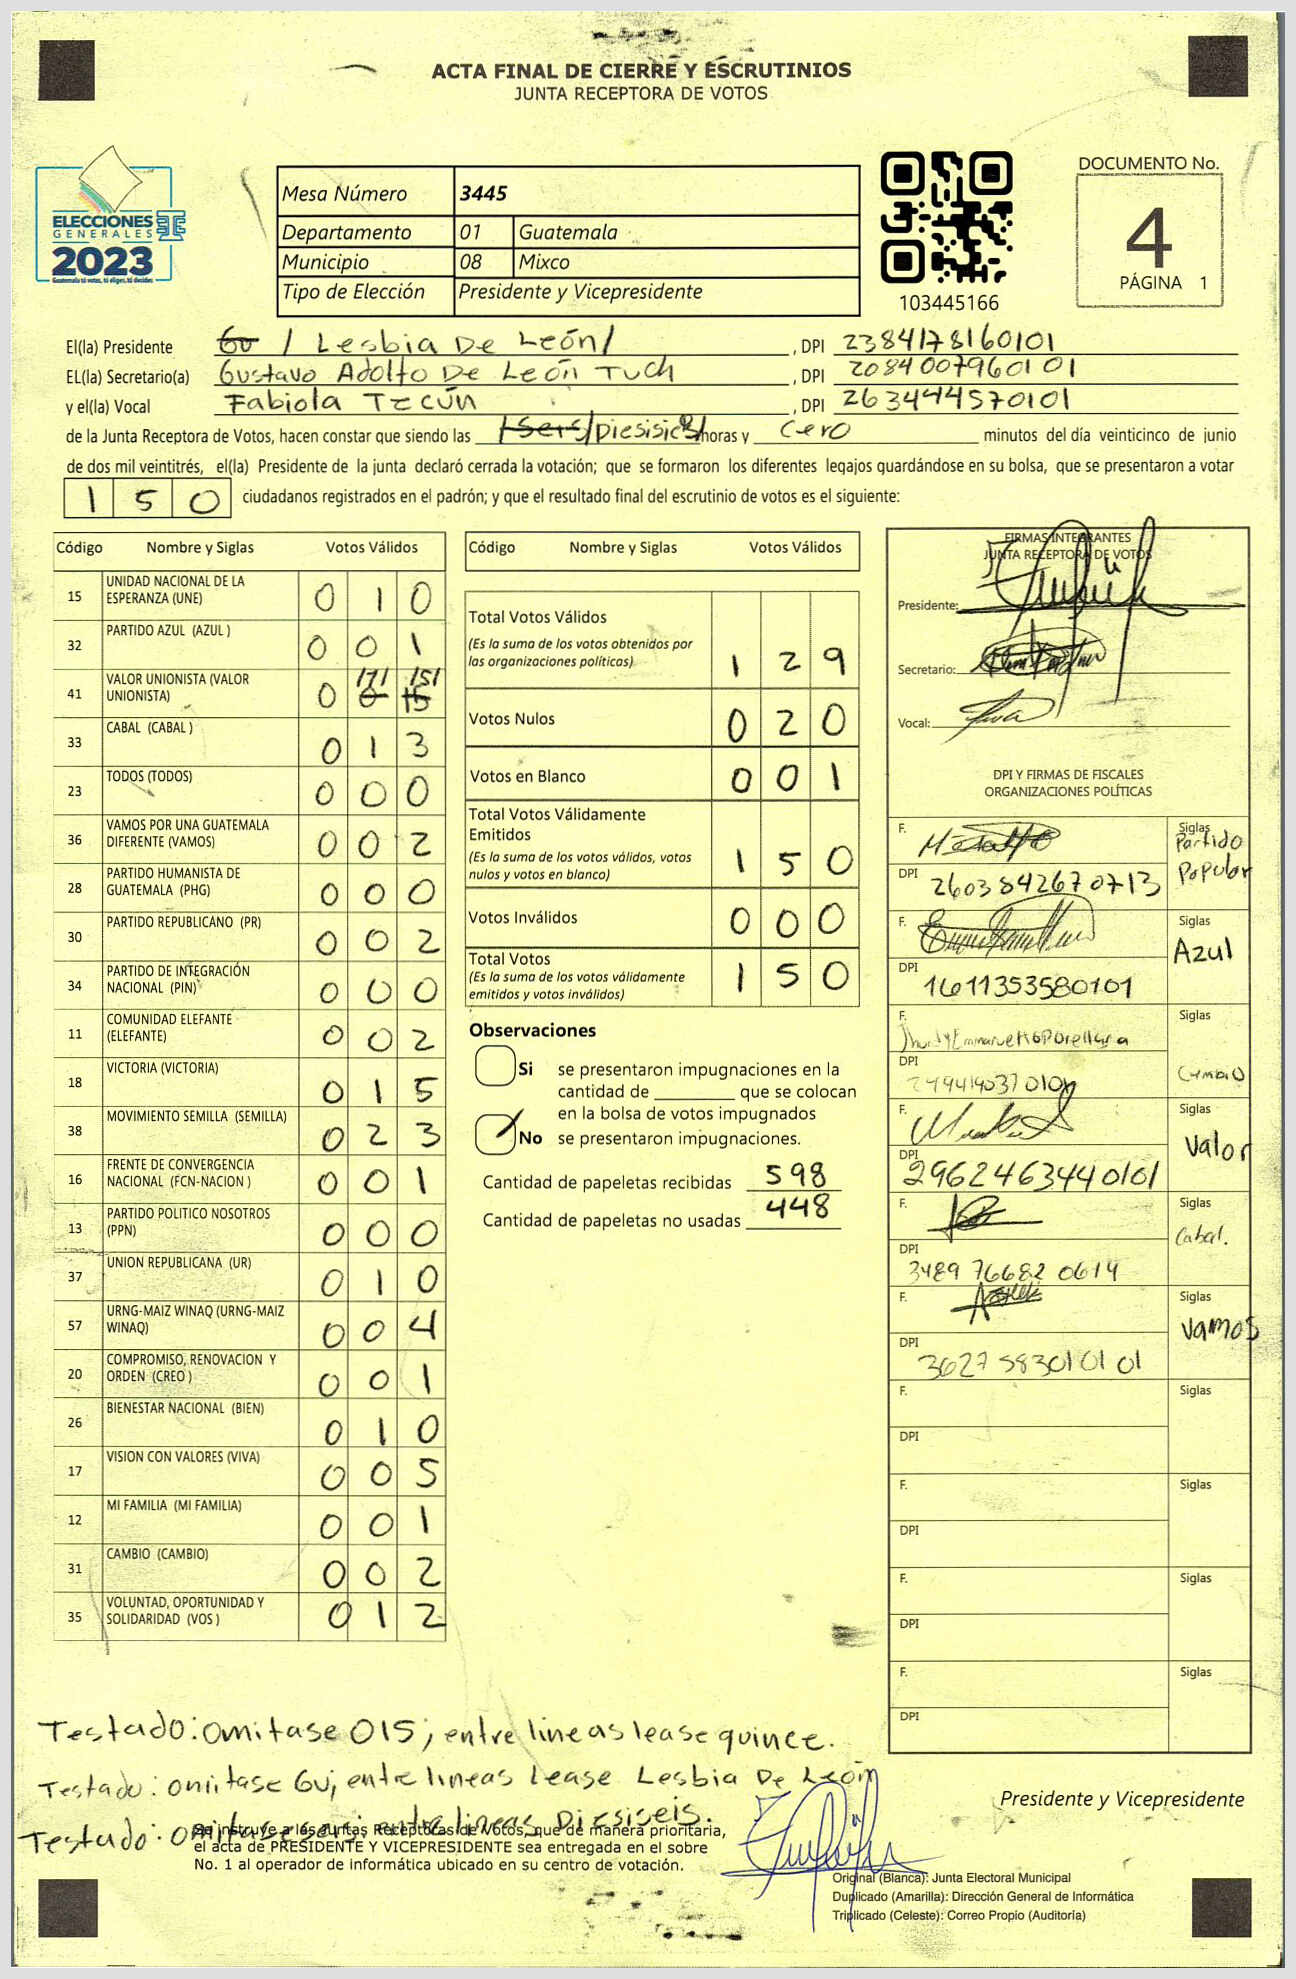 ACTA FINAL DE CIERRE Y ESCRUTINIOS
JUNTA RECEPTORA DE VOTOS
ELECCIONES
GENERALES
2023
Guatemala tú votas, tú eliges, tú decides
Mesa Número 3445
Departamento 01 Guatemala
Municipio 08 Mixco
Tipo de Elección Presidente y Vicepresidente
103445166
DOCUMENTO No.
4
PÁGINA 1
El(la) Presidente Gu / Lesbia De León/ , DPI 2384178160101
EL(la) Secretario(a) Gustavo Adolfo De León Tuch , DPI 2084007960101
y el(la) Vocal Fabiola Tecún , DPI 263444570101
de la Junta Receptora de Votos, hacen constar que siendo las /Seis/ horas y cero minutos del día veinticinco de junio
de dos mil veintitrés, el(la) Presidente de la junta declaró cerrada la votación; que se formaron los diferentes legajos guardándose en su bolsa, que se presentaron a votar
150 ciudadanos registrados en el padrón; y que el resultado final del escrutinio de votos es el siguiente:
Código Nombre y Siglas Votos Válidos
15 UNIDAD NACIONAL DE LA ESPERANZA (UNE) 0 1 0
32 PARTIDO AZUL (AZUL ) 0 0 1
41 VALOR UNIONISTA (VALOR UNIONISTA) 0 /1/ /5/
33 CABAL (CABAL ) 0 1 3
23 TODOS (TODOS) 0 0 0
36 VAMOS POR UNA GUATEMALA DIFERENTE (VAMOS) 0 0 2
28 PARTIDO HUMANISTA DE GUATEMALA (PHG) 0 0 0
30 PARTIDO REPUBLICANO (PR) 0 0 2
34 PARTIDO DE INTEGRACIÓN NACIONAL (PIN) 0 0 0
11 COMUNIDAD ELEFANTE (ELEFANTE) 0 0 2
18 VICTORIA (VICTORIA) 0 1 5
38 MOVIMIENTO SEMILLA (SEMILLA) 0 2 3
16 FRENTE DE CONVERGENCIA NACIONAL (FCN-NACION ) 0 0 1
13 PARTIDO POLITICO NOSOTROS (PPN) 0 0 0
37 UNION REPUBLICANA (UR) 0 1 0
57 URNG-MAIZ WINAQ (URNG-MAIZ WINAQ) 0 0 4
20 COMPROMISO, RENOVACION Y ORDEN (CREO ) 0 0 1
26 BIENESTAR NACIONAL (BIEN) 0 1 0
17 VISION CON VALORES (VIVA) 0 0 5
12 MI FAMILIA (MI FAMILIA) 0 0 1
31 CAMBIO (CAMBIO) 0 0 2
35 VOLUNTAD, OPORTUNIDAD Y SOLIDARIDAD (VOS ) 0 1 2
Código Nombre y Siglas Votos Válidos
Total Votos Válidos 1 2 9
(Es la suma de los votos obtenidos por
las organizaciones políticas)
Votos Nulos 0 2 0
Votos en Blanco 0 0 1
Total Votos Válidamente
Emitidos 1 5 0
(Es la suma de los votos válidos, votos
nulos y votos en blanco)
Votos Inválidos 0 0 0
Total Votos 1 5 0
(Es la suma de los votos válidamente
emitidos y votos inválidos)
Observaciones
Si se presentaron impugnaciones en la
cantidad de ________ que se colocan
en la bolsa de votos impugnados
No se presentaron impugnaciones.
Cantidad de papeletas recibidas 598
Cantidad de papeletas no usadas 448
FIRMAS INTEGRANTES
JUNTA RECEPTORA DE VOTOS
Presidente:
Secretario:
Vocal:
DPI Y FIRMAS DE FISCALES
ORGANIZACIONES POLÍTICAS
F. Siglas Partido Popular
DPI 2603842670713
F. Siglas Azul
DPI 1611353580101
F. Siglas Cambio
DPI
F. Siglas Valor
DPI 2962463440101
F. Siglas Cabal.
DPI 3489766820614
F. Siglas Vamos
DPI 3627583010101
F. Siglas
DPI
F. Siglas
DPI
F. Siglas
DPI
F. Siglas
DPI
Testado: omitase 015; entre lineas lease quince.
Testado: omitase Gu; entre lineas Lease Lesbia De León
Testado: omitase seis; entre lineas Diesiseis.
Se instruye a las Juntas Receptoras de Votos, que de manera prioritaria,
el acta de PRESIDENTE Y VICEPRESIDENTE sea entregada en el sobre
No. 1 al operador de informática ubicado en su centro de votación.
Presidente y Vicepresidente
Original (Blanca): Junta Electoral Municipal
Duplicado (Amarilla): Dirección General de Informática
Triplicado (Celeste): Correo Propio (Auditoría)